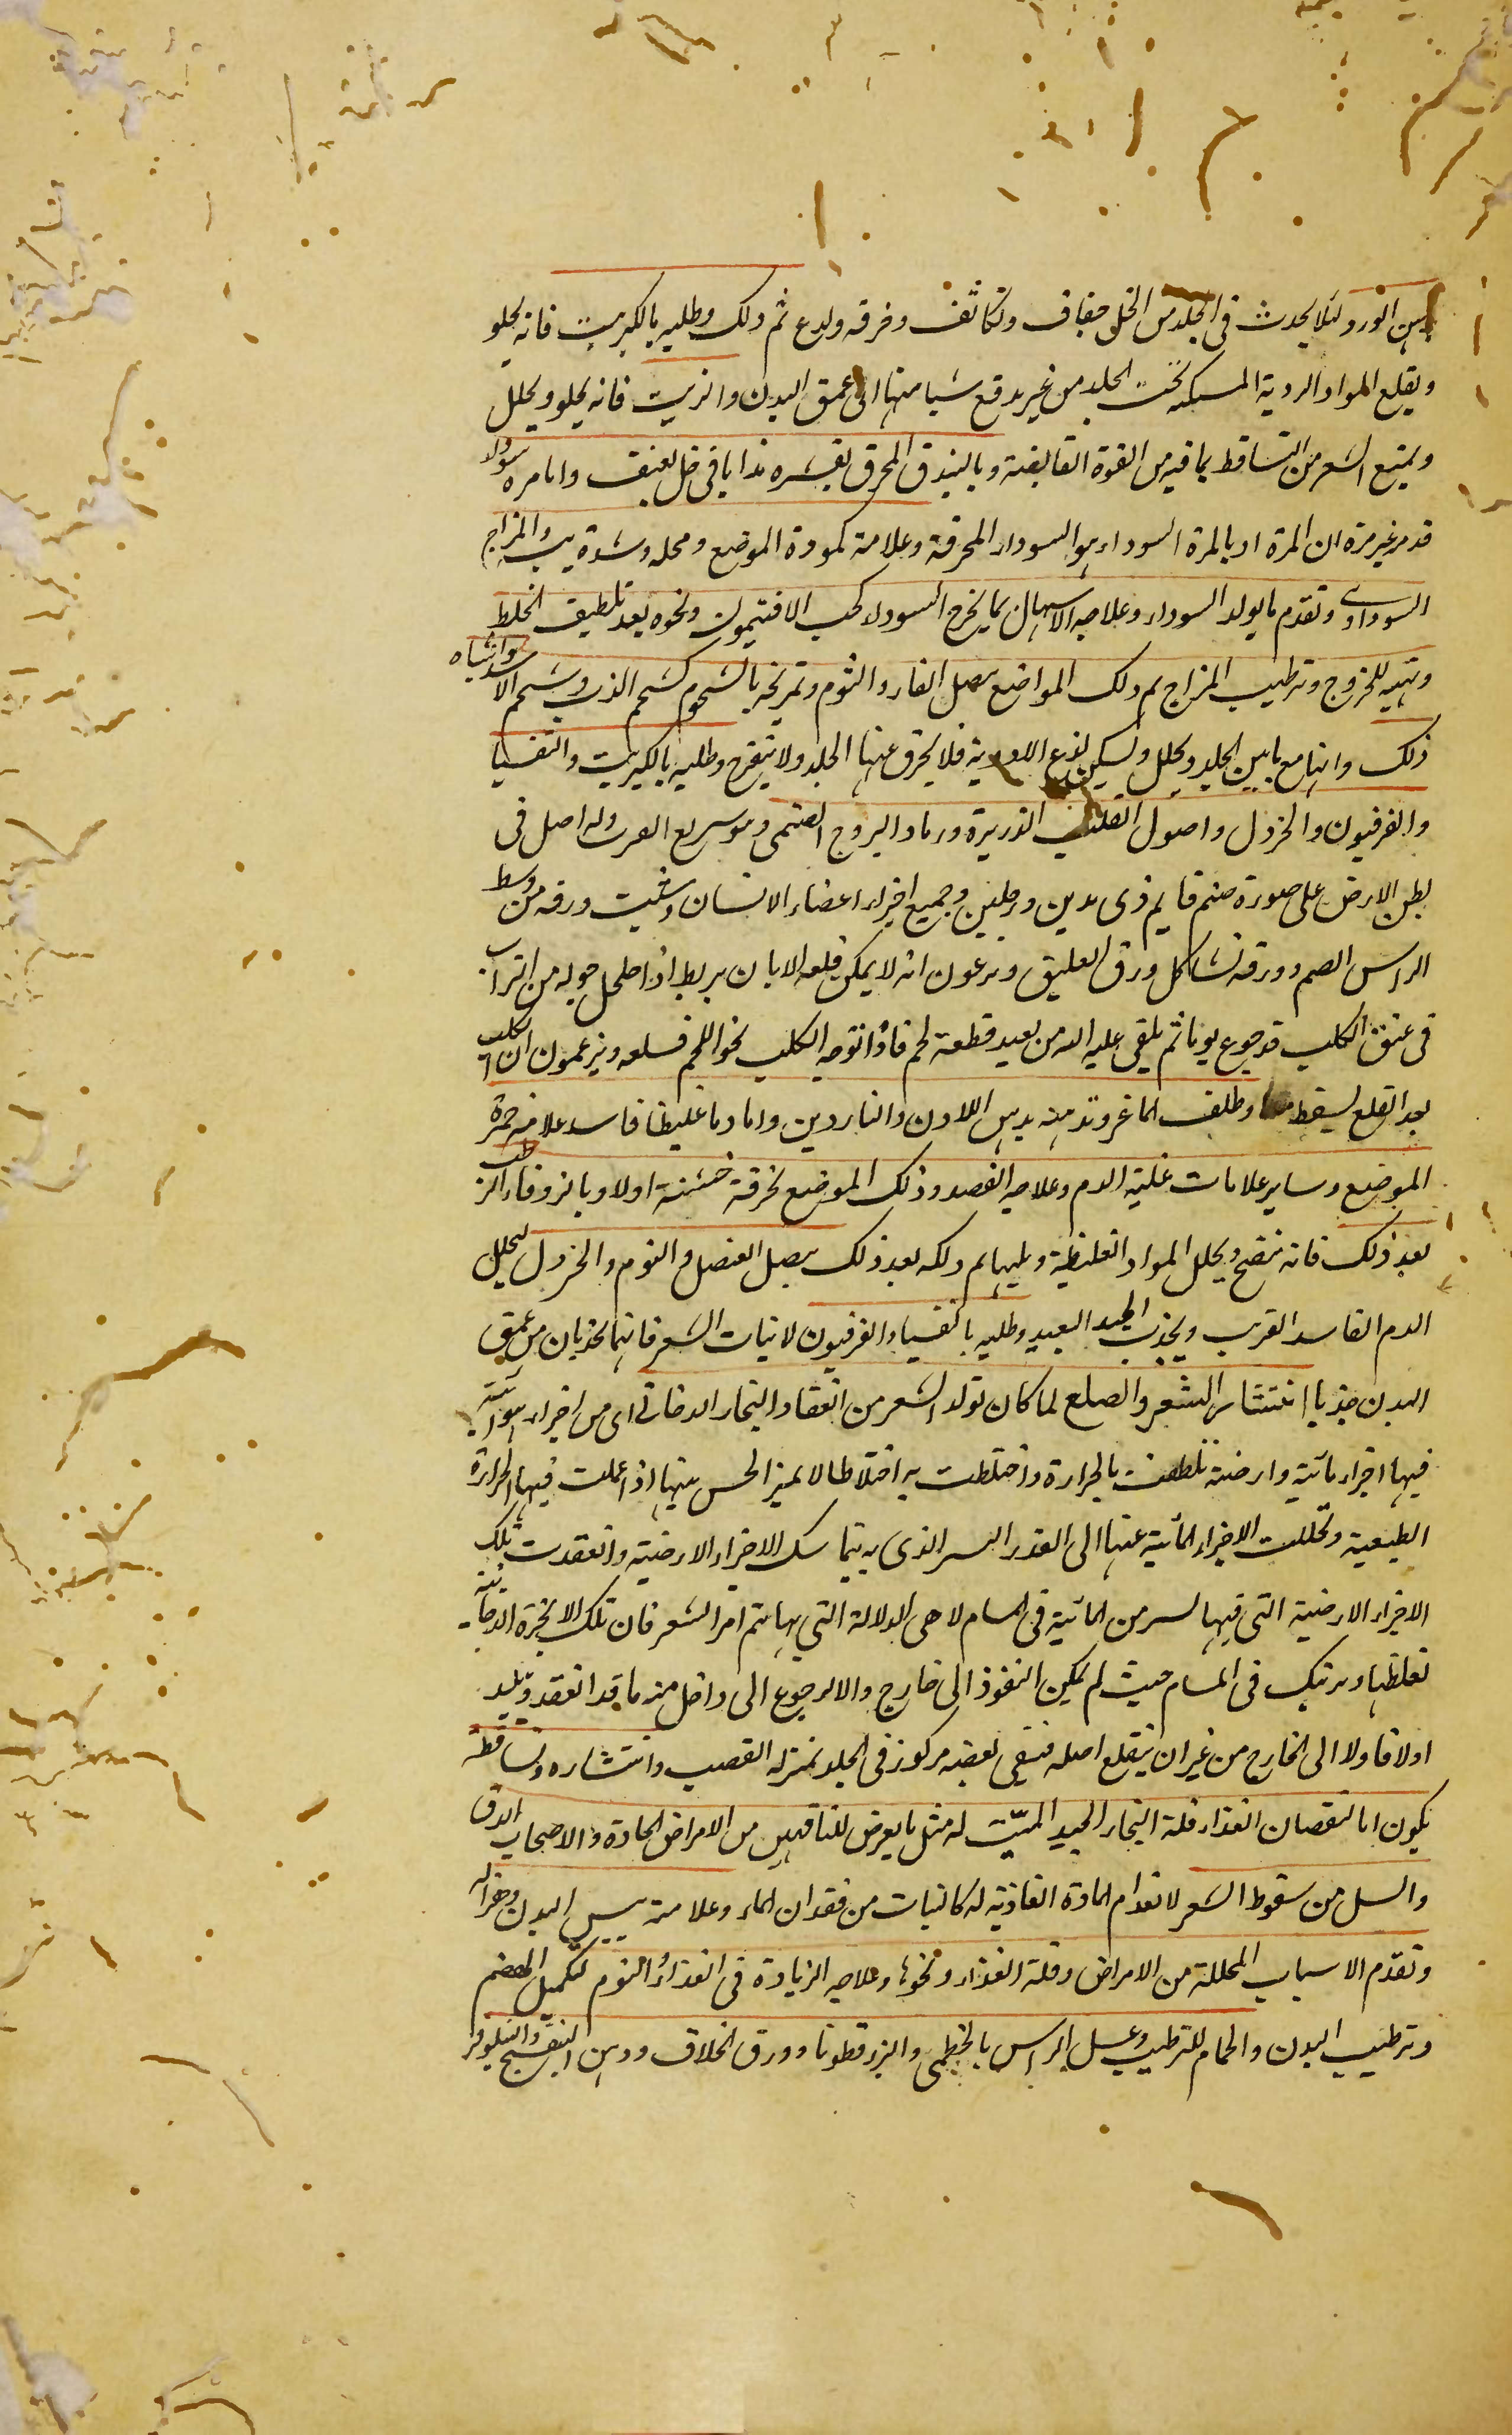 دهن الورد لئلا يحدث فى الجلد من الخل جفاف وتكاثف وحرقه ولدع ثم دلك وطليه بالكبريت فانه يجلو
ويقلع المواد الردية المستكنه تحت الجلد من غير يدفع شيا منها الى عمق البدن والزيت فانه يجلو ويحلل
ويمنع الشعر من التساقط بما فيه من القوة القابضة وبالبندق المحرق بقشره مذابا فى خل ثقيف واما مره سوداء
قد مر غير مرة ان المرة اد بالمرة السوداء هو السوداء المحرقة وعلامة كمودة الموضع ومحله وشدة يبسه والمزاج
السوداوى وتقدم ما يولد السوداء وعلاجه الاسهال بما يخرج السوداء كحب الافتيمون ونحوه بعد تلطيف الخلط
وتهيه للخروج وترطيب المزاج ثم دلك المواضع ببصل الفار والثوم وتمريخه بالشحوم كشحم الدب وشحم الاسد واشباه
ذلك وانها مع ما يلين الجلد ويحلل ويسكن لذع الادوية فلا يحرق عنها الجلد ولا يتقرح وطليه بالكبريت والثفسيا
والفرفيون والخردل واصول القصب الذريرة ورماد اليبروج الصنمى وهو سريع العرب وله اصل فى
بطن الارض على صورة صنم قايم ذى يدين ورجلين وجميع اجزاء اعضاء الانسان وينبت ورقه من وسط
الراس الصنم وورقه تشاكل ورق العليق ويزعمون انه لا يمكن قلعه الا بان يربط اذا اضمحل حوله من التراب
فى عنق الكلب قد جوع يوما ثم يلقى عليه اليه من بعيد قطعة لحم فاذا توجه الكلب نحو اللحم قلعه ويزعمون ان الكلب
بعد القلع يسقط ميتا وظلف الماعز وتدهينه بدهن اللادن والناردين واما دما غليظا فاسدا علامته حمرة
الموضع وساير علامات غلبة الدم وعلاجه الفصد ودلك الموضع بخرقة خشنة اولا وبالزوفاء الرطب
بعد ذلك فانه ينضج ويحلل المواد الغليظة ويلينها ثم دلكه بعد ذلك ببصل العنصل والثوم والخردل ليحلل
الدم الفاسد القريب ويجذب الجيد البعيد وطليه بالثفسيا والفرفيون لانبات الشعر فانهما يجذبان من عميق
البدن جذبا انتشار الشعر والصلع لما كان تولد الشعر من انعقاد البخار الدخانى اى من اجزاء هوائية
فيها اجزاء مائية وارضية تلطفت بالحرارة واختلطت به اختلاطا لا يميز الحس بينها اذا عملت فيها الحرارة
الطبيعية وتحللت الاجزاء المائية عنها الى القدر اليسير الذى به يتماسك الاجزاء الارضية وانعقدت تلك
الاجزاء الارضية التى فيها يسير من المائية فى المسام لا هى الدلالة التى بها يتم امر الشعر فان تلك الابخرة الدخانية
لغلظها ويرتبك فى المسام حيث لم يمكن النفوذ الى خارج ولا الرجوع الى داخل منه ما قد انعقد ويلبد
اولا فاولا الى الخارج من غير ان ينقلع اصله فيبقى بعضه مركوز فى الجلد بمنزلة القصب وانتشاره وتساقطه
يكون اما لنقصان الغذاء وقلة البخار الجيد المنبت له مثل ما يعرض للناقهين من الامراض الحادة ولاصحاب الدق
والسل من سقوط الشعر لانعدام المادة الغاذية له كالنبات من فقدان الماء وعلامته يبس البدن وهزاله
وتقدم الاسباب المحللة من الامراض وقلة الغذاء ونحوها وعلاجه الزيادة فى الغذاء والنوم لتكميل الهضم
وترطيب البدن والحمام للترطيب وغسل الراس بالخطمى والبزرقطونا وورق الخلاف ودهن البنفسج والنيلوفر